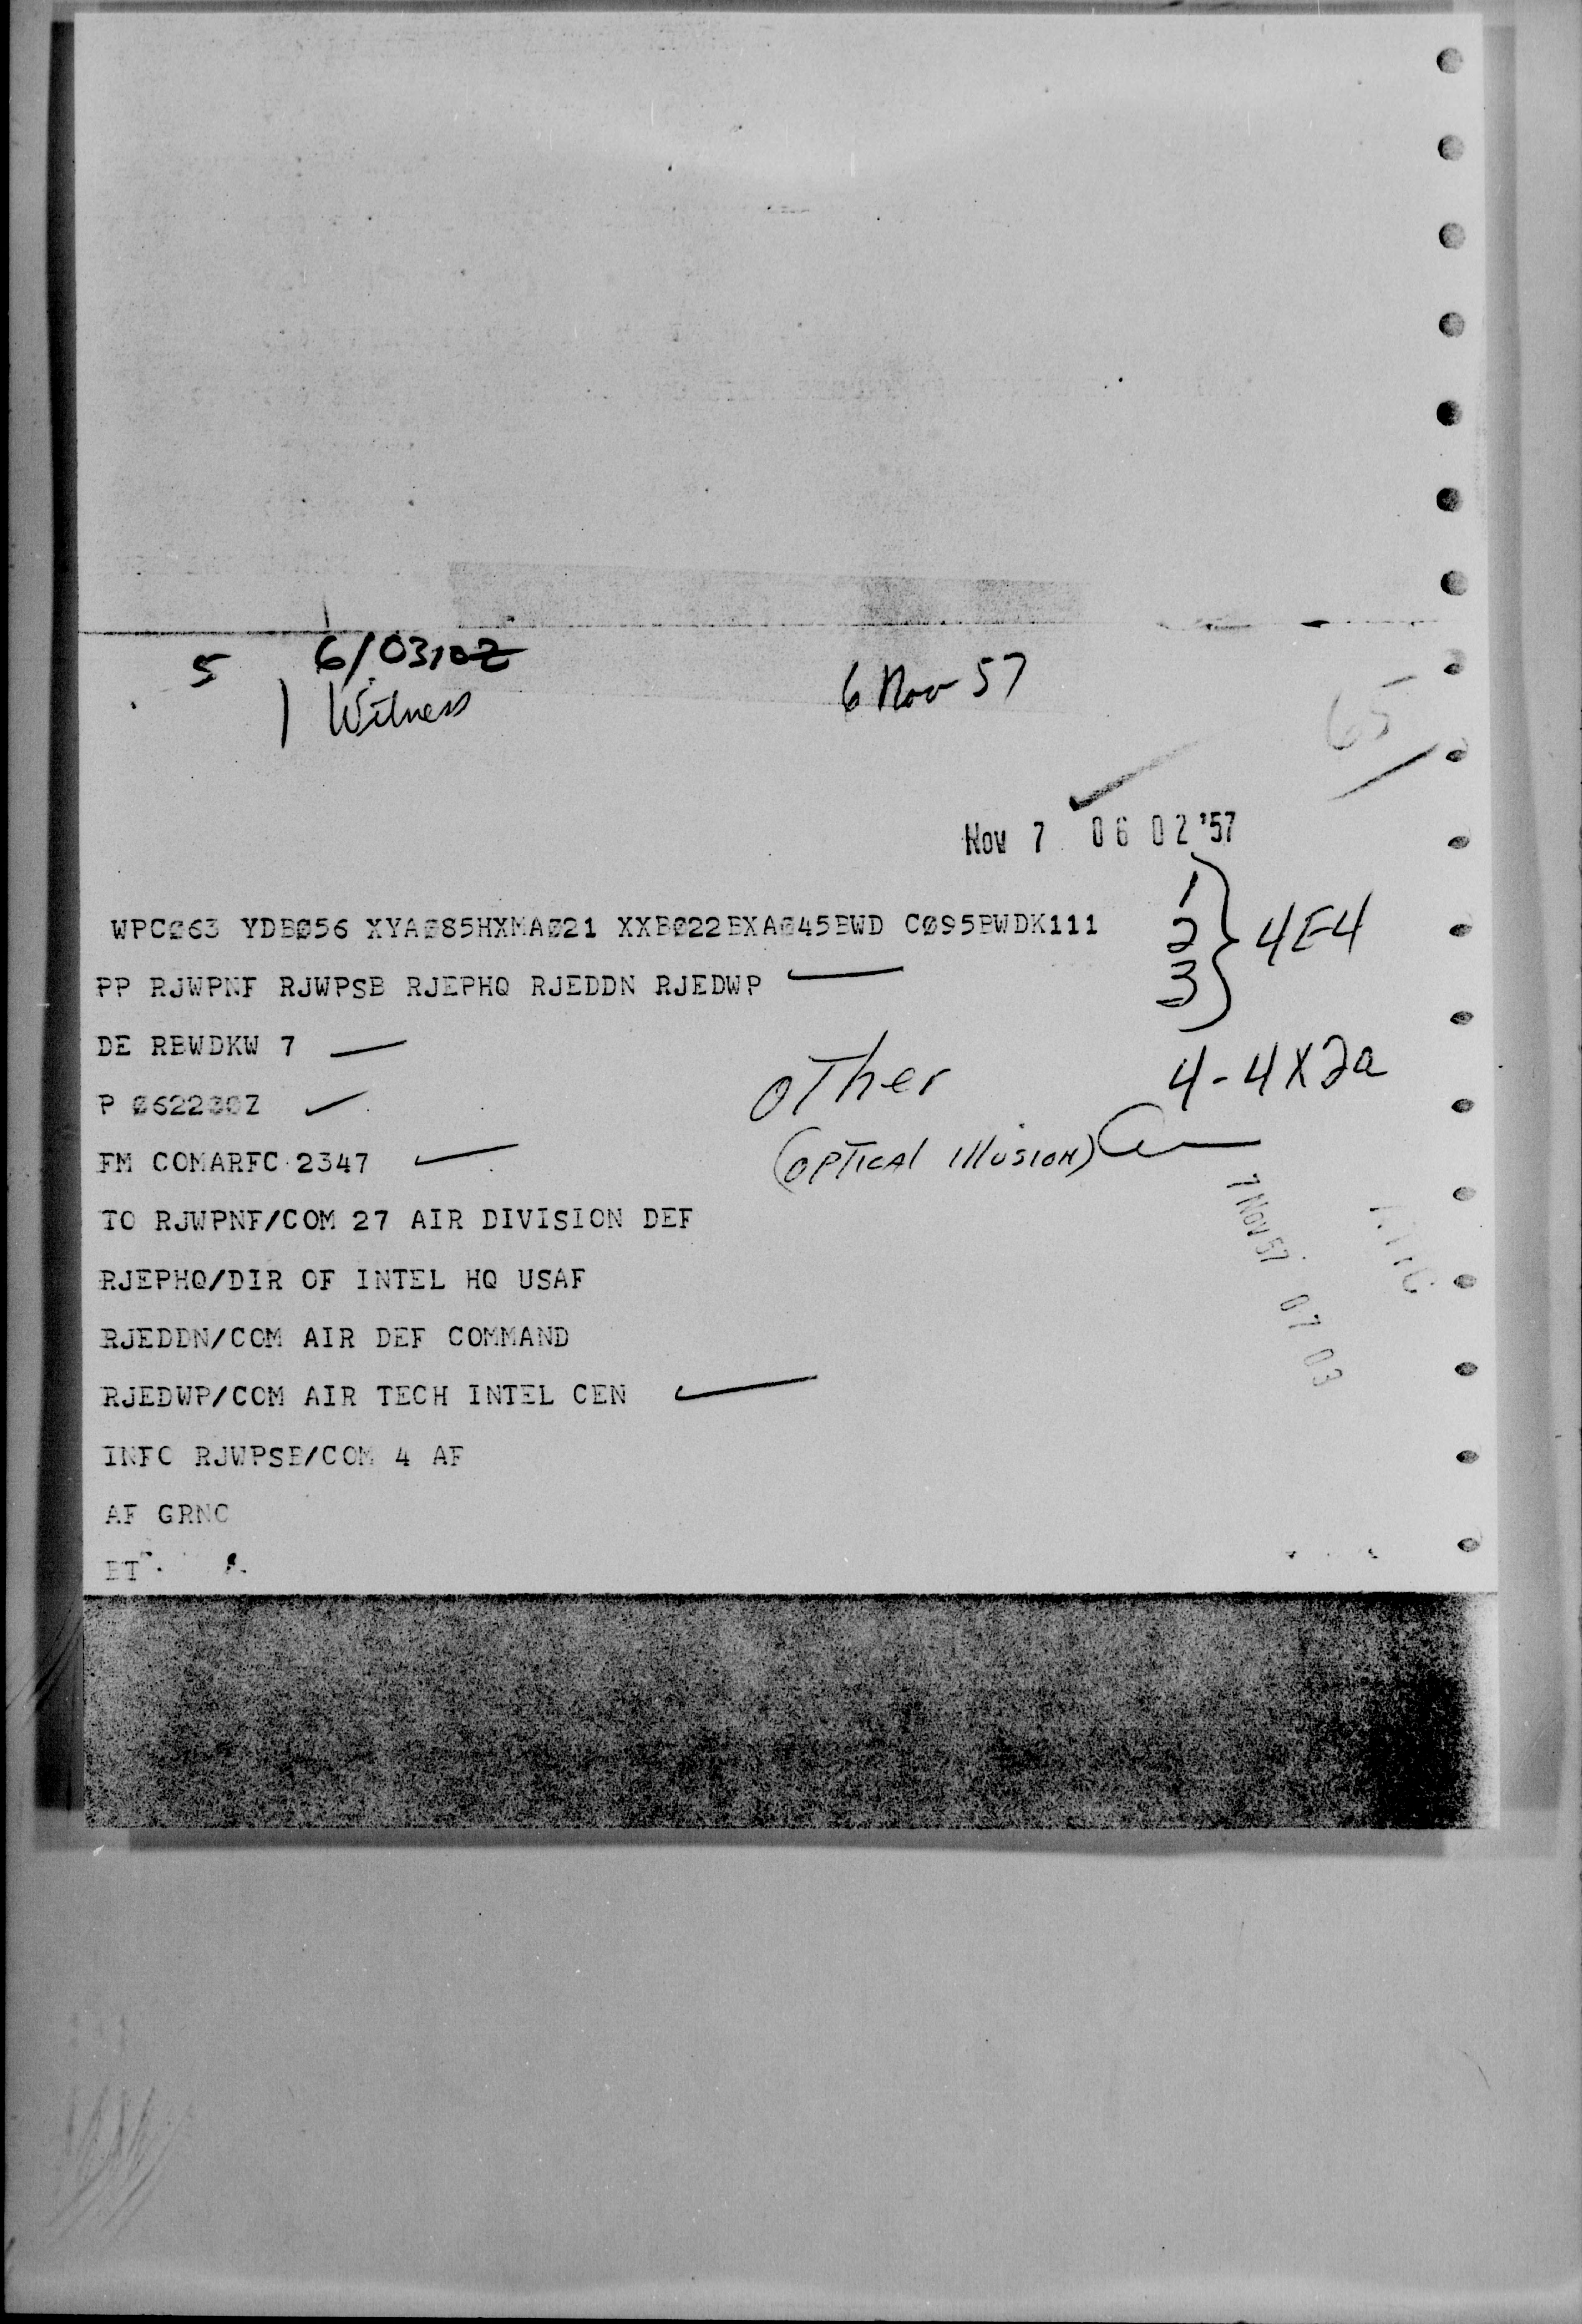 5 6/0310Z
1 Witness
6 Nov 57
65
Nov 7 06 02 '57
WPC063 YDB056 XYA085HXMA021 XXB022BXA045BWD C095BWDK111
1
2
3
4E4
PP RJWPNF RJWPSB RJEPHQ RJEDDN RJEDWP
DE RBWDKW 7
P 062230Z
Other
4-4X2a
FM COMARFC 2347
(OPTICAl IllUSION)
TO RJWPNF/COM 27 AIR DIVISION DEF
7 NOV 57 07 03
RJEPHQ/DIR OF INTEL HQ USAF
RJEDDN/COM AIR DEF COMMAND
RJEDWP/COM AIR TECH INTEL CEN
INFO RJWPSB/COM 4 AF
AF GRNC
BT